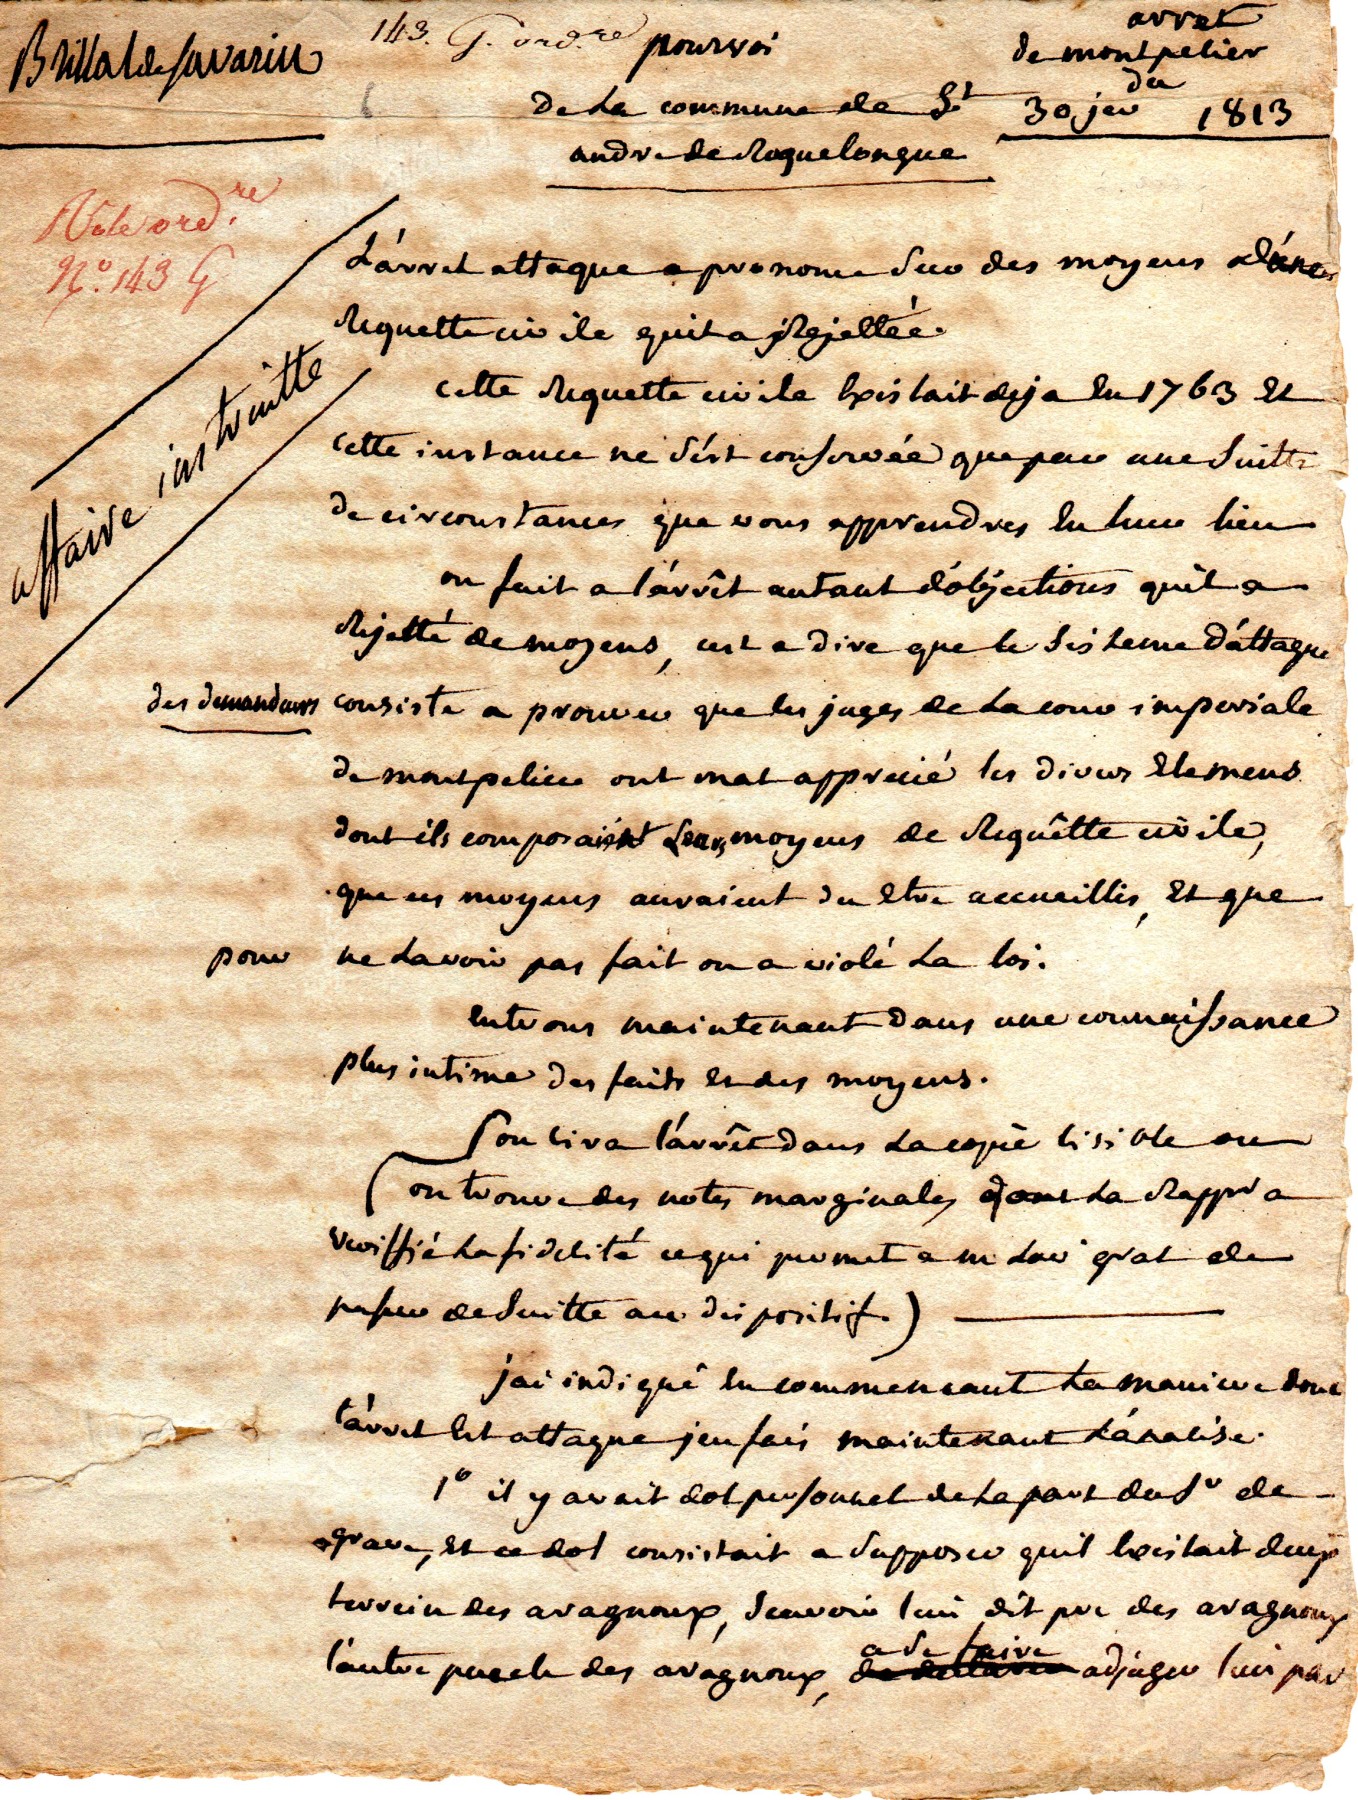 Brillat de Savarin
143. G. ord.re
pourvoi
de La commune de St
andre de Roquelongue
arret
de montpelier
du
30 jer 1813
Vole ord.re
N.o 143 G
affaire instruitte
L'arret attaque a prononce sur des moyens d'une
Requette civile quil a Rejettée.
cette Requette civile Existait deja En 1763 Et
cette instance ne s'est conservée que par une suitte
de circonstances que vous apprendres En leur lieu
on fait a l'arrêt autant d'objections qu'il a
Rejetté de moyens, cest a dire que le sisteme d'attaque
des demandeurs consiste a prouver que les juges de La cour imperiale
de montpelier ont mal apprecié les divers Elemens
dont ils composaient Leurs moyens de Requêtte civile,
que ces moyens auraient du Etre accueillis, Et que
pour ne Lavoir pas fait on a violé La loi.
Entrons maintenant dans une connaissance
plus intime des faits Et des moyens.
(on lira l'arrêt dans La copie lisible ou
on trouve des notes marginales dont La Rappr a
verifié La fidelité ce qui permet a m Lav gral de
passer de suitte au dispositif.)
j'ai indiqué En commencant La maniere dont
l'arret Est attaque jen fais maintenant L'analise.
1o il y avait dol personnel de La part du Sr de
grave, Et ce dol consistait a supposer quil Existait deux
terrein des aragnoux, scavoir l'un dit pre des aragnoux
l'autre parcele des aragnoux, a se faire adjuger l'un par